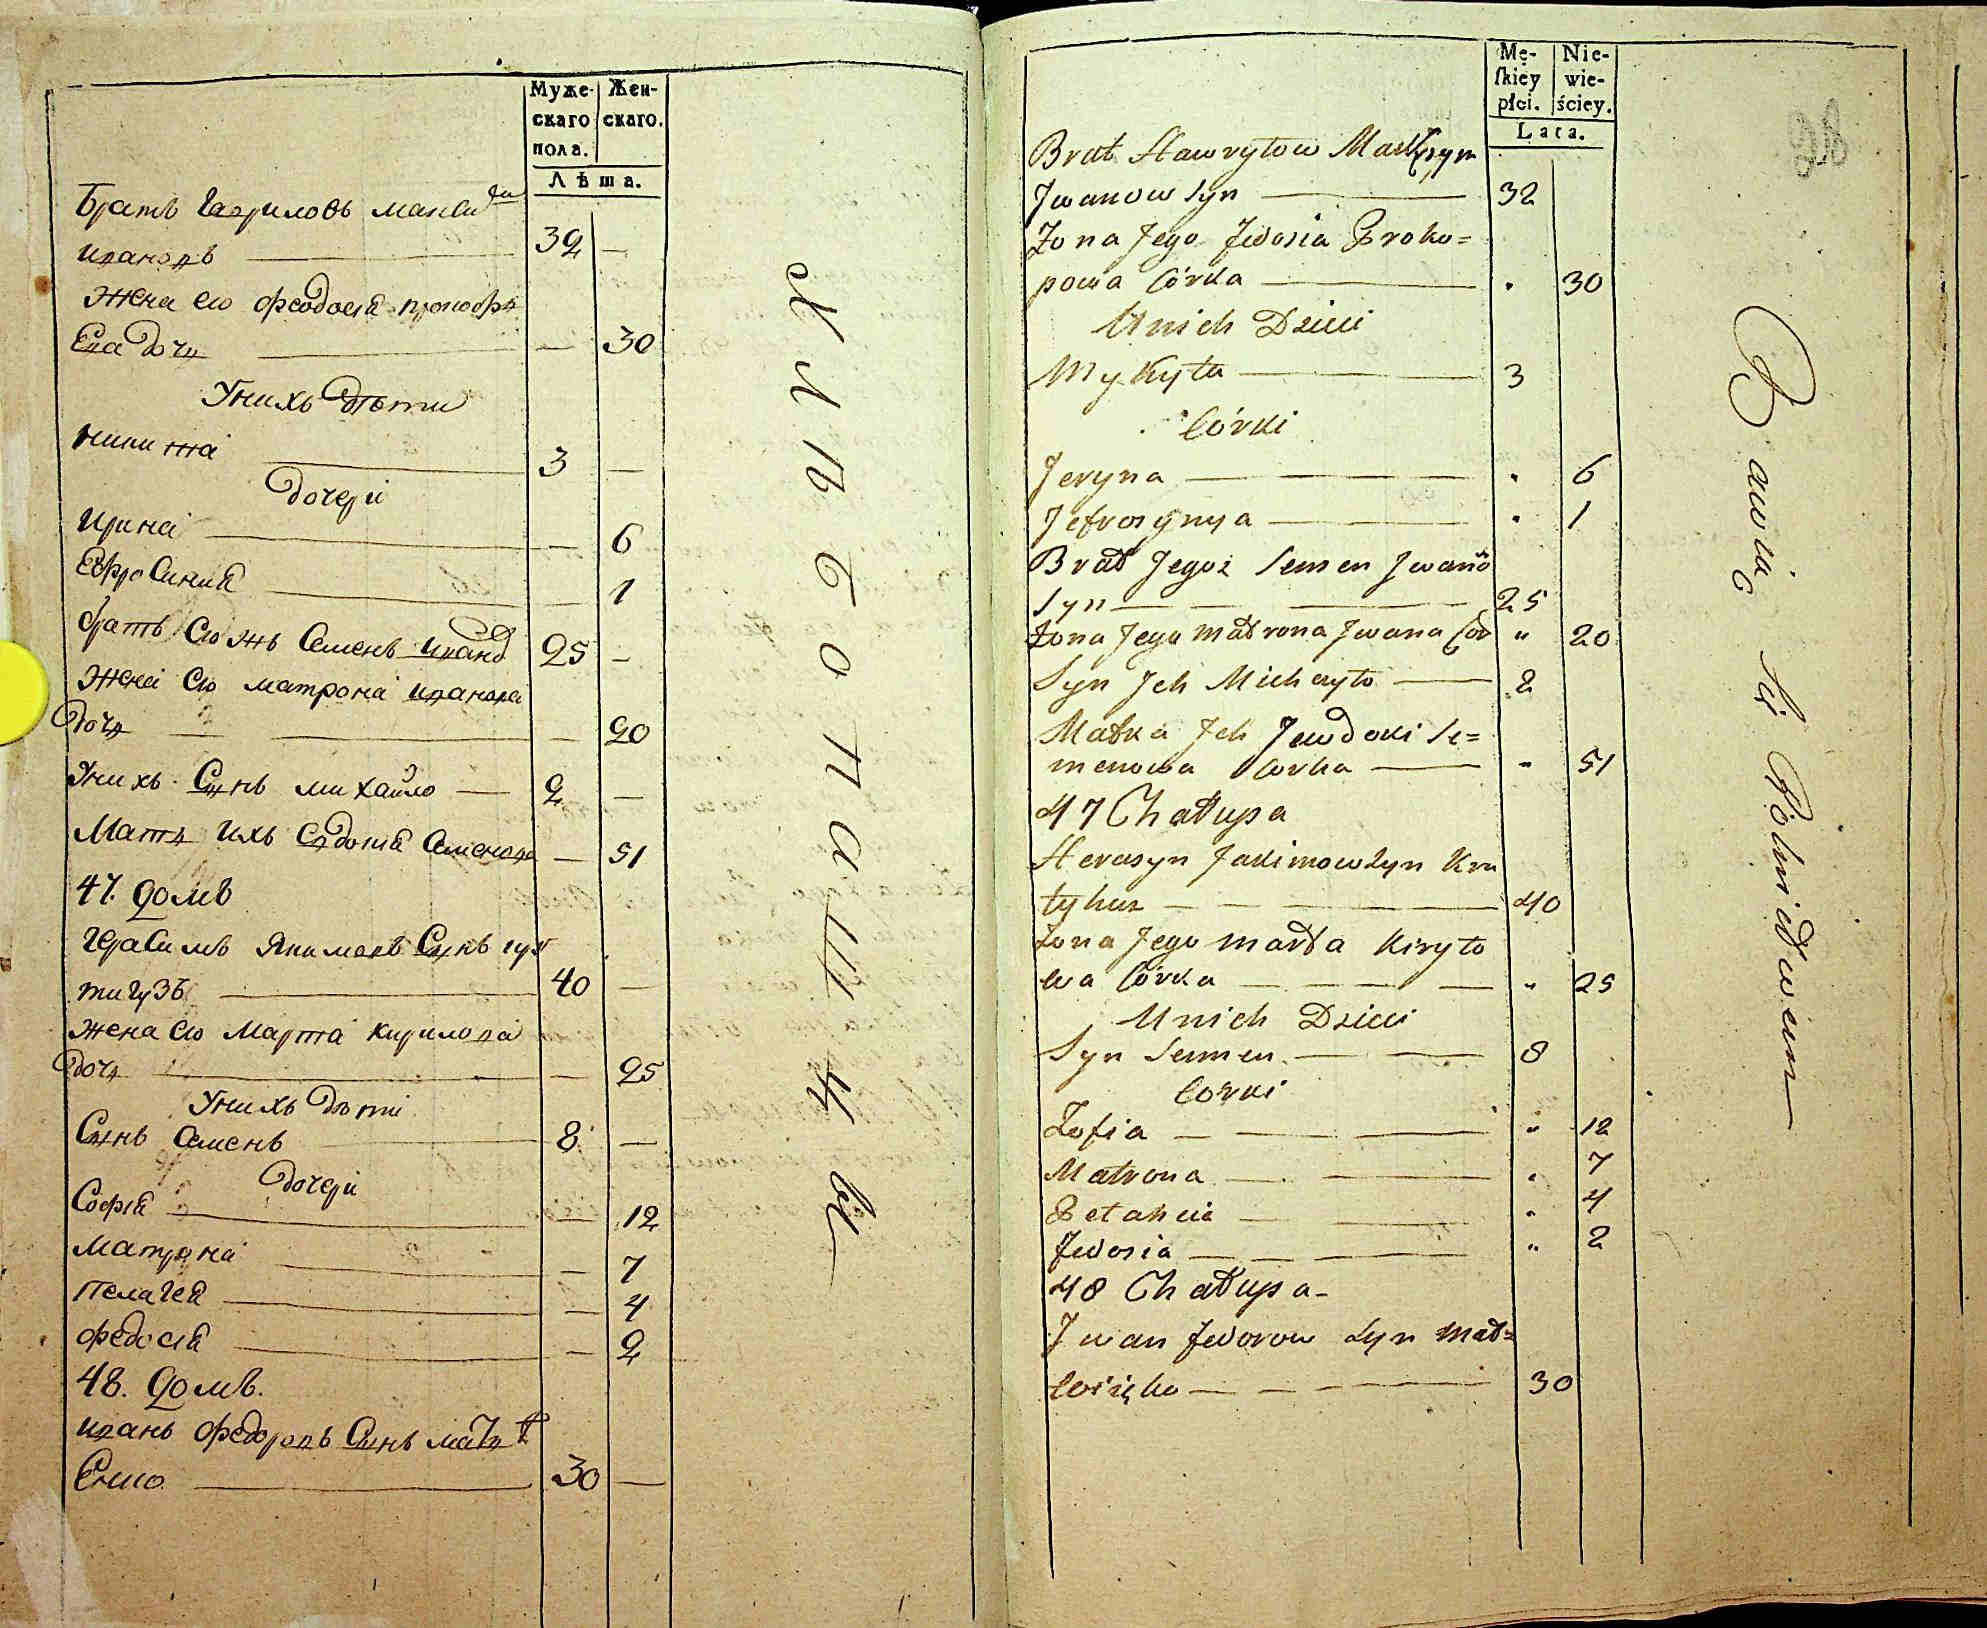 Муже-
скаго
пола.
Жен-
скаго.
Лѣта.
Братъ Гавриловъ Максим
Ивановъ 32 —
Жена его Феодосія Прокофь
Ева дочь — 30
У нихъ дѣти
Никита 3 —
Дочери
Ирина — 6
Евфросинія — 1
братъ его жъ Семенъ Иванов 25 —
Жена его матрона Иванова
дочь — 20
У нихъ Сынъ михайло — 2 —
Мать ихъ Евдокія Семенова — 51
47. домъ
Герасимъ Якимовъ Сынъ кул
тигузъ 40 —
жена его Марта Кирилова
дочь — 25
У нихъ дѣти
Сынъ Семенъ 8 —
Дочери
Софія — 12
Матрона — 7
Пелагея — 4
Федосія — 2
48. домъ.
Иванъ Федоровъ Сынъ матв
Енко 30 —
Męskiey
płci.
Nie-
wie-
ściey.
Lata.
Brat Hawryłow Maxym
Jwanow Syn — 32
Żona Jego Fedosia Proko=
powa Córka — " 30
U nich Dzieci
Mykyta — 3
Córki
Jeryna — " 6
Jefrosynya — " 1
Brat Jegoż Semen Jwanō
Syn — 25
Żona Jego Matrona Jwana Cór " 20
Syn Jch Michayło — 2
Matka Jch Jewdoki Se=
menowa Corka — " 51
47 Chałupa
Herasyn Jakimow Syn Ku
tyhuz — 40
Żona Jego Marta Kiryło
wa Córka — " 25
U nich Dzieci
Syn Semen — 8
Corki
Zofia — " 12
Matrona — " 7
Pelahia — " 4
Fedosia — " 2
48 Chałupa
Jwan Fedorow Syn Mat=
30
Bawią się Rolnictwem